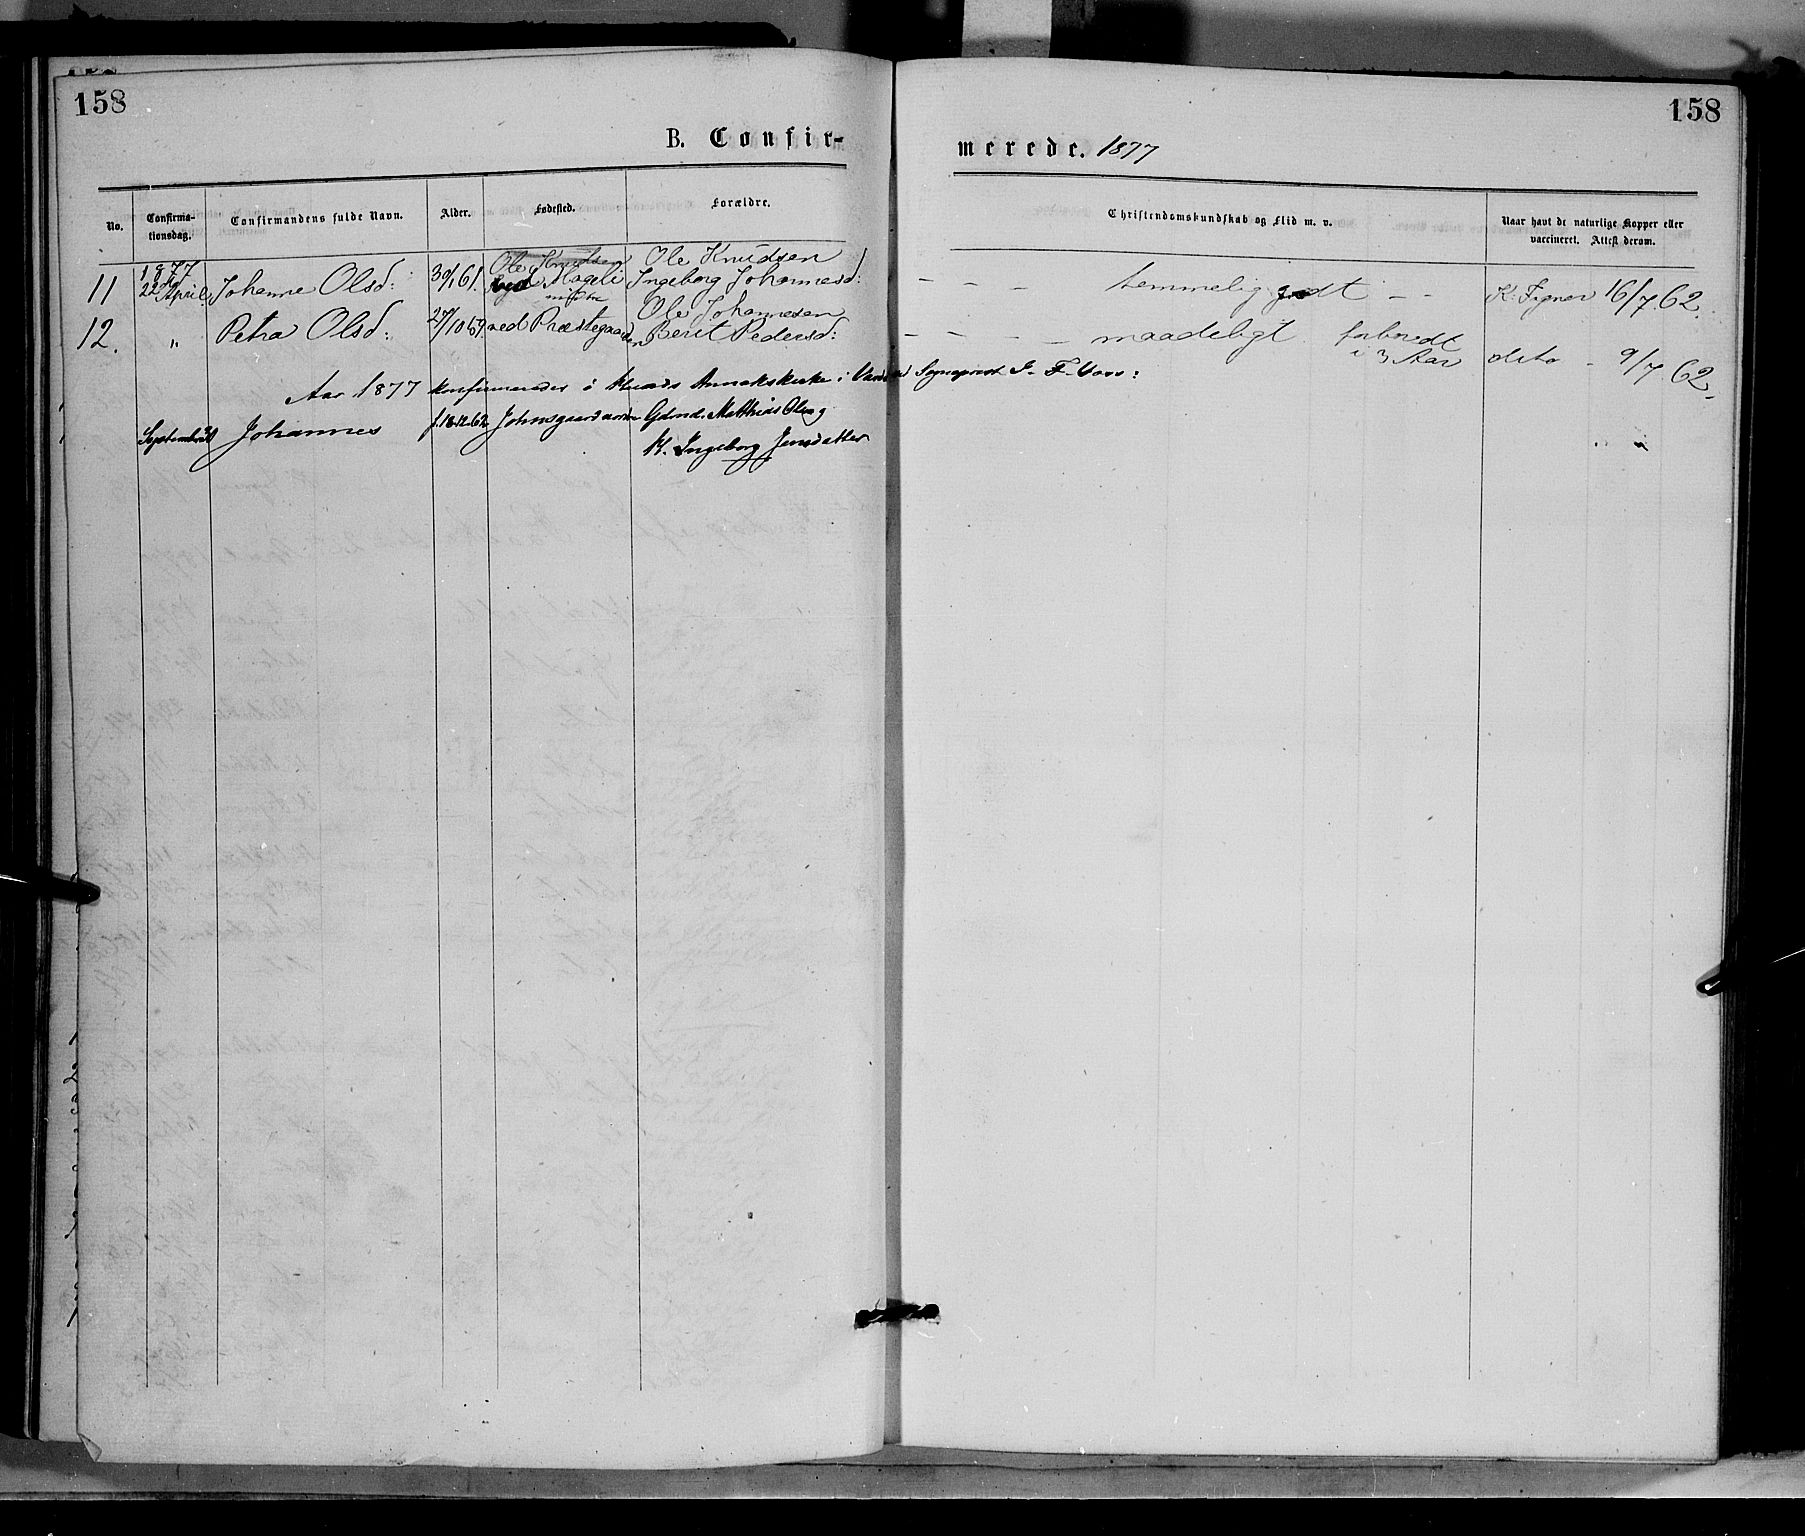 158
158
B. Confir-
merede. 1877
No.
Confirma-
tionsdag.
Confirmandens fulde Navn.
Alder.
Fødested.
Forældre.
Christendomskundskab og Flid m. v.
Naar havt de naturlige Kopper eller
vaccineret. Attest derom.
11 1877 22de April Johanne Olsd: 30/1 61. Ole Knudsen Hageli Ole Knudsen Ingeborg Johannesd: – – – temmelig godt – – K. Fygner 16/7 62.
12. " Petra Olsd: 27/10 59. ved Præstegaarden Ole Johannesen Berit Pedersd: – – – – maadeligt. forberedt i 3 Aar dito – 9/7 62.
Aar 1877 konfirmeredes i Annekskirke i Sogneprest J. F. Voss:
September Johannes f. 18-12-62 Johnsgaard Gdmd. Matthias Olsen og
K. Ingeborg Jensdatter " "